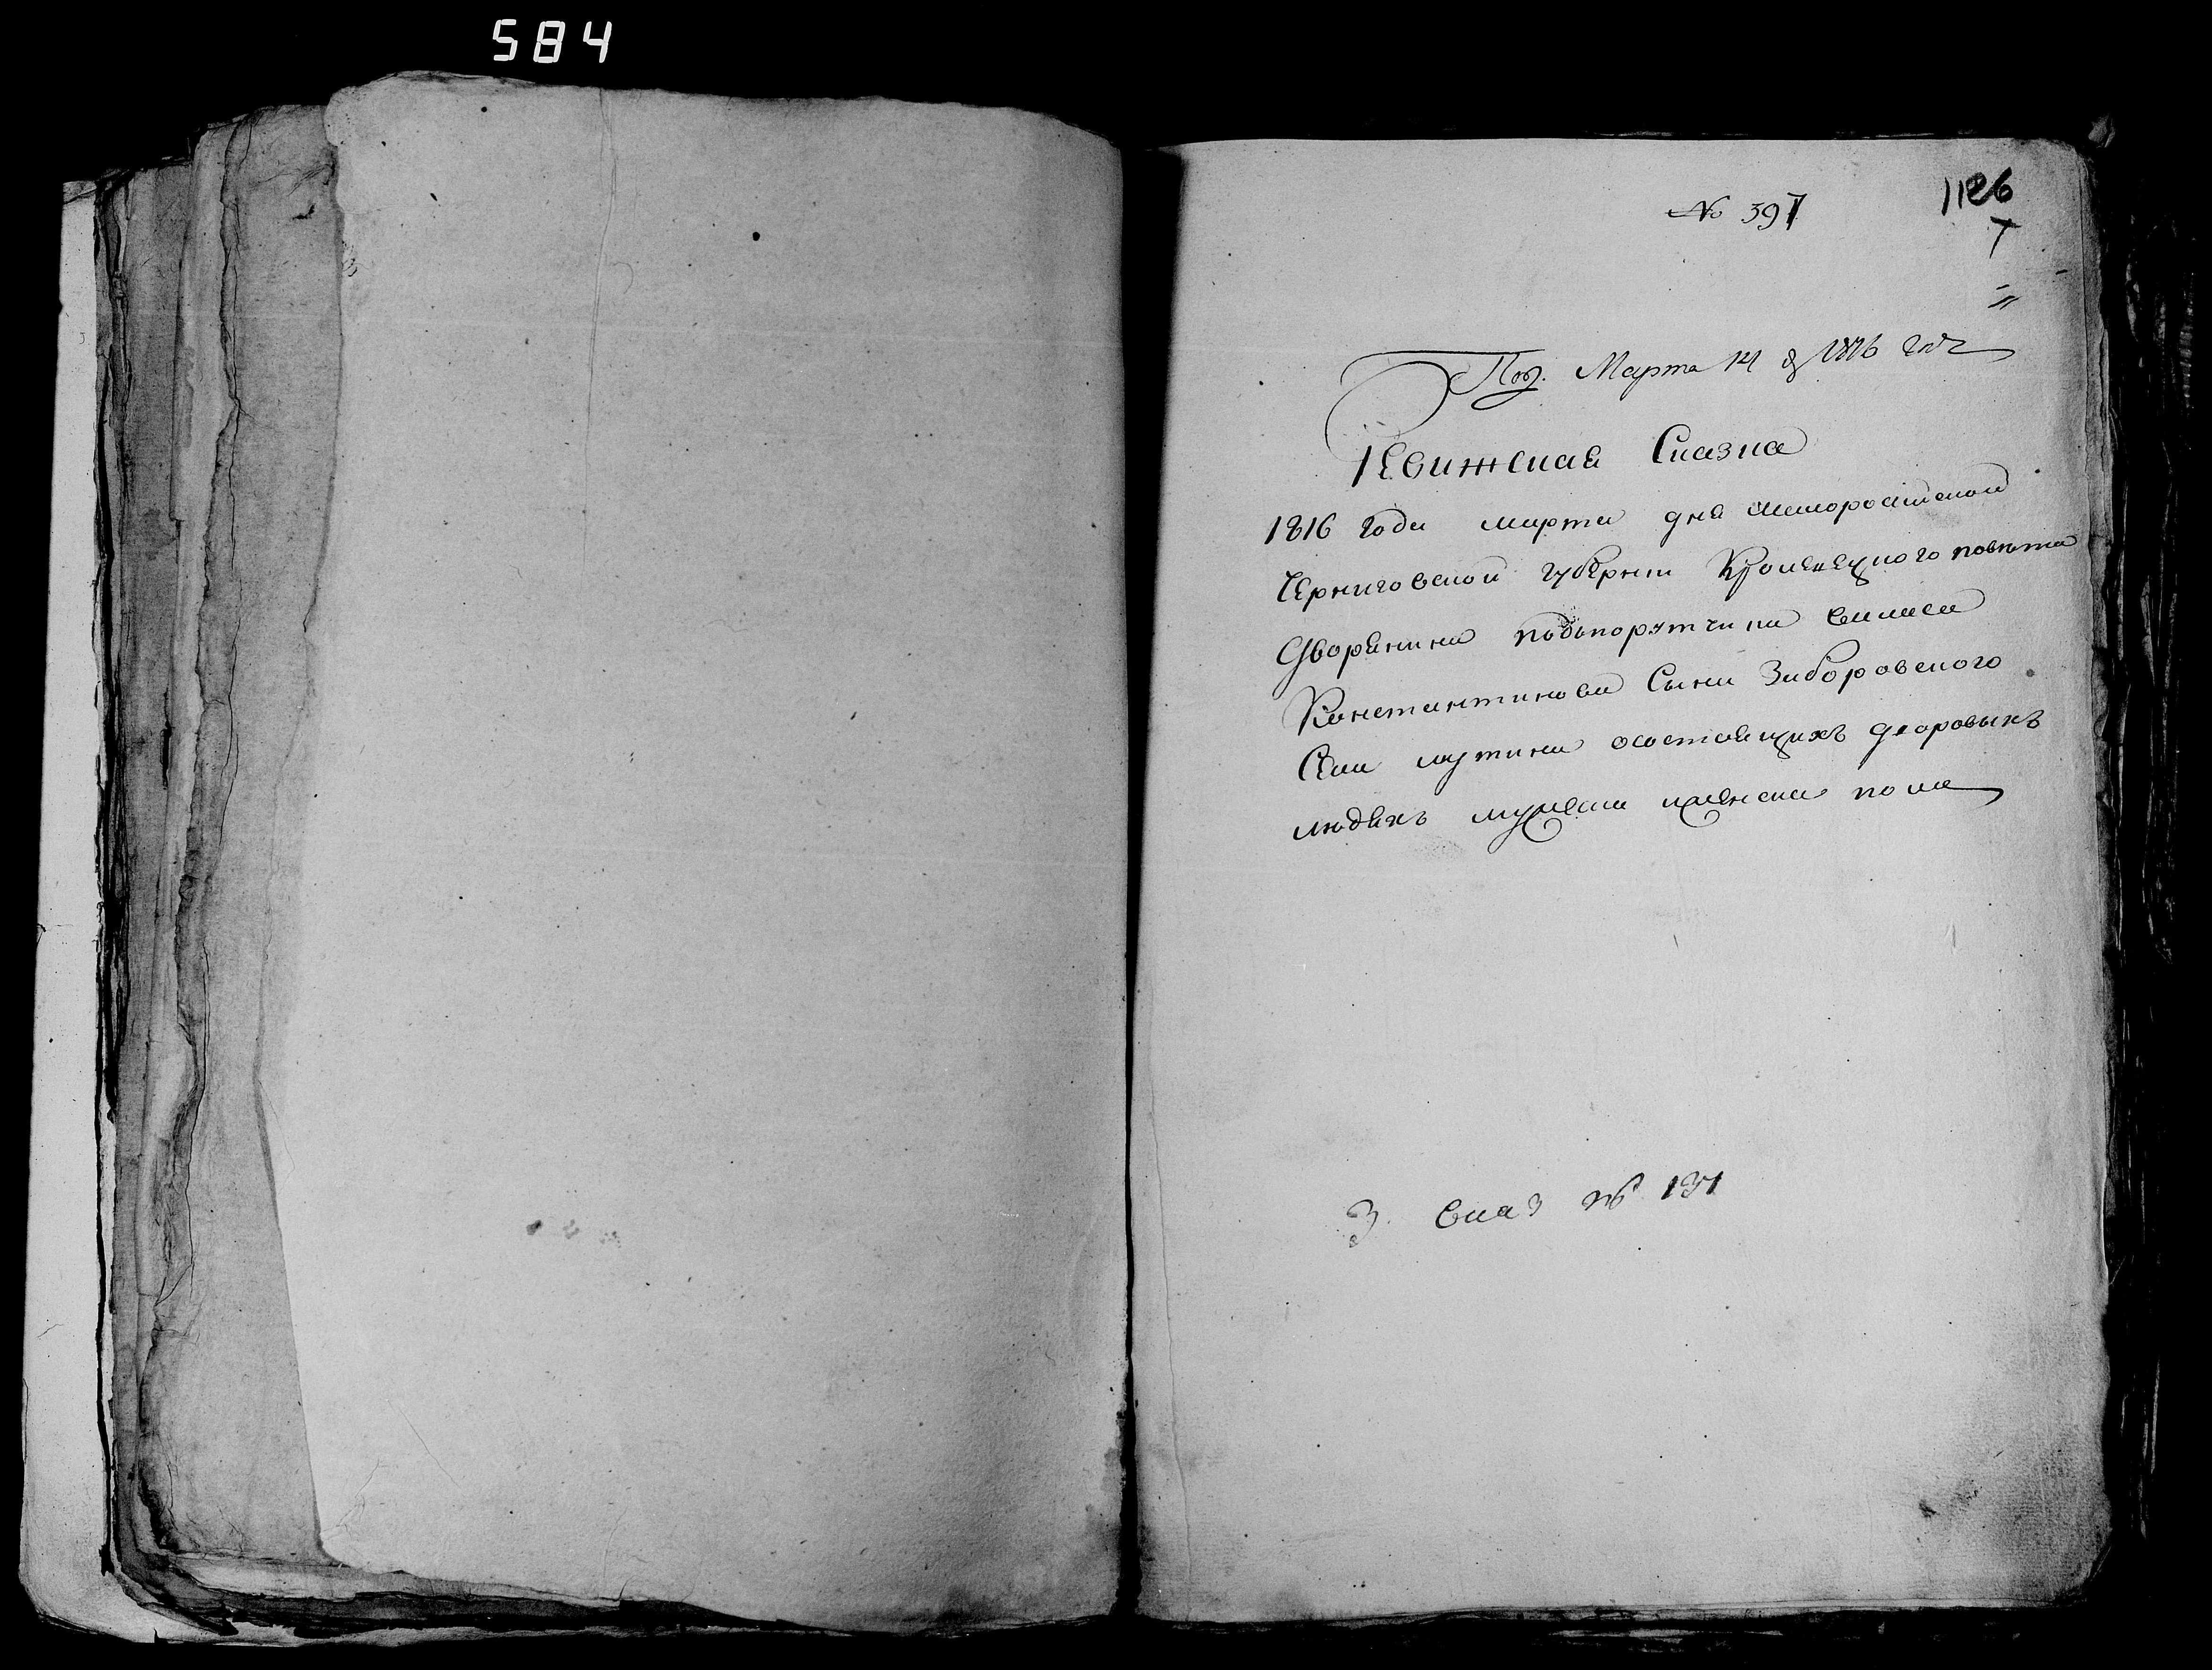 584
1126
№ 397
Под. Марта 14 д 1816 году
Ревижская Сказка
1816 года марта дня малоросийской
Черниговской губернии Кролевецкого повета
Дворянина подпорутчика
Константинова Сына Зиборовского
Села мутина осостоящихъ дворовыхъ
людяхъ мужеска иженска пола
Сказ № 131